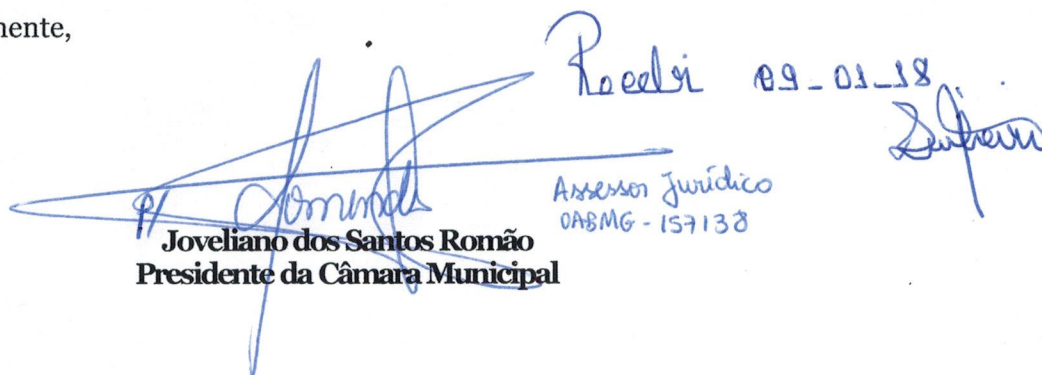 mente,
Recebi 09-01-18
Assessor Jurídico
OABMG - 157138
P/
Joveliano dos Santos Romão
Presidente da Câmara Municipal